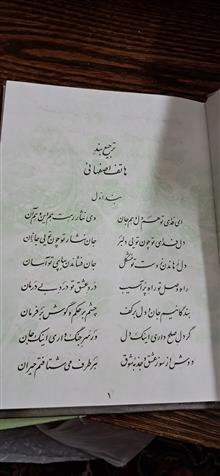 ترجیع بند
هاتف اصفهانی
بند اول
ای فدای تو هم دل و هم جان وی نثار رهت هم این و هم آن
دل فدای تو چون تویی دلبر جان نثار تو چون تویی جانان
دل رهاندن ز دست تو مشکل جان فشاندن به پای تو آسان
راه وصل تو راه پر آسیب درد عشق تو درد بی درمان
بندگانیم جان و دل بر کف چشم بر حکم و گوش بر فرمان
گر دل صلح داری اینک دل ور سر جنگ داری اینک جان
دوش از سوز عشق و جذبه شوق هر طرف می شتافتم حیران
۱